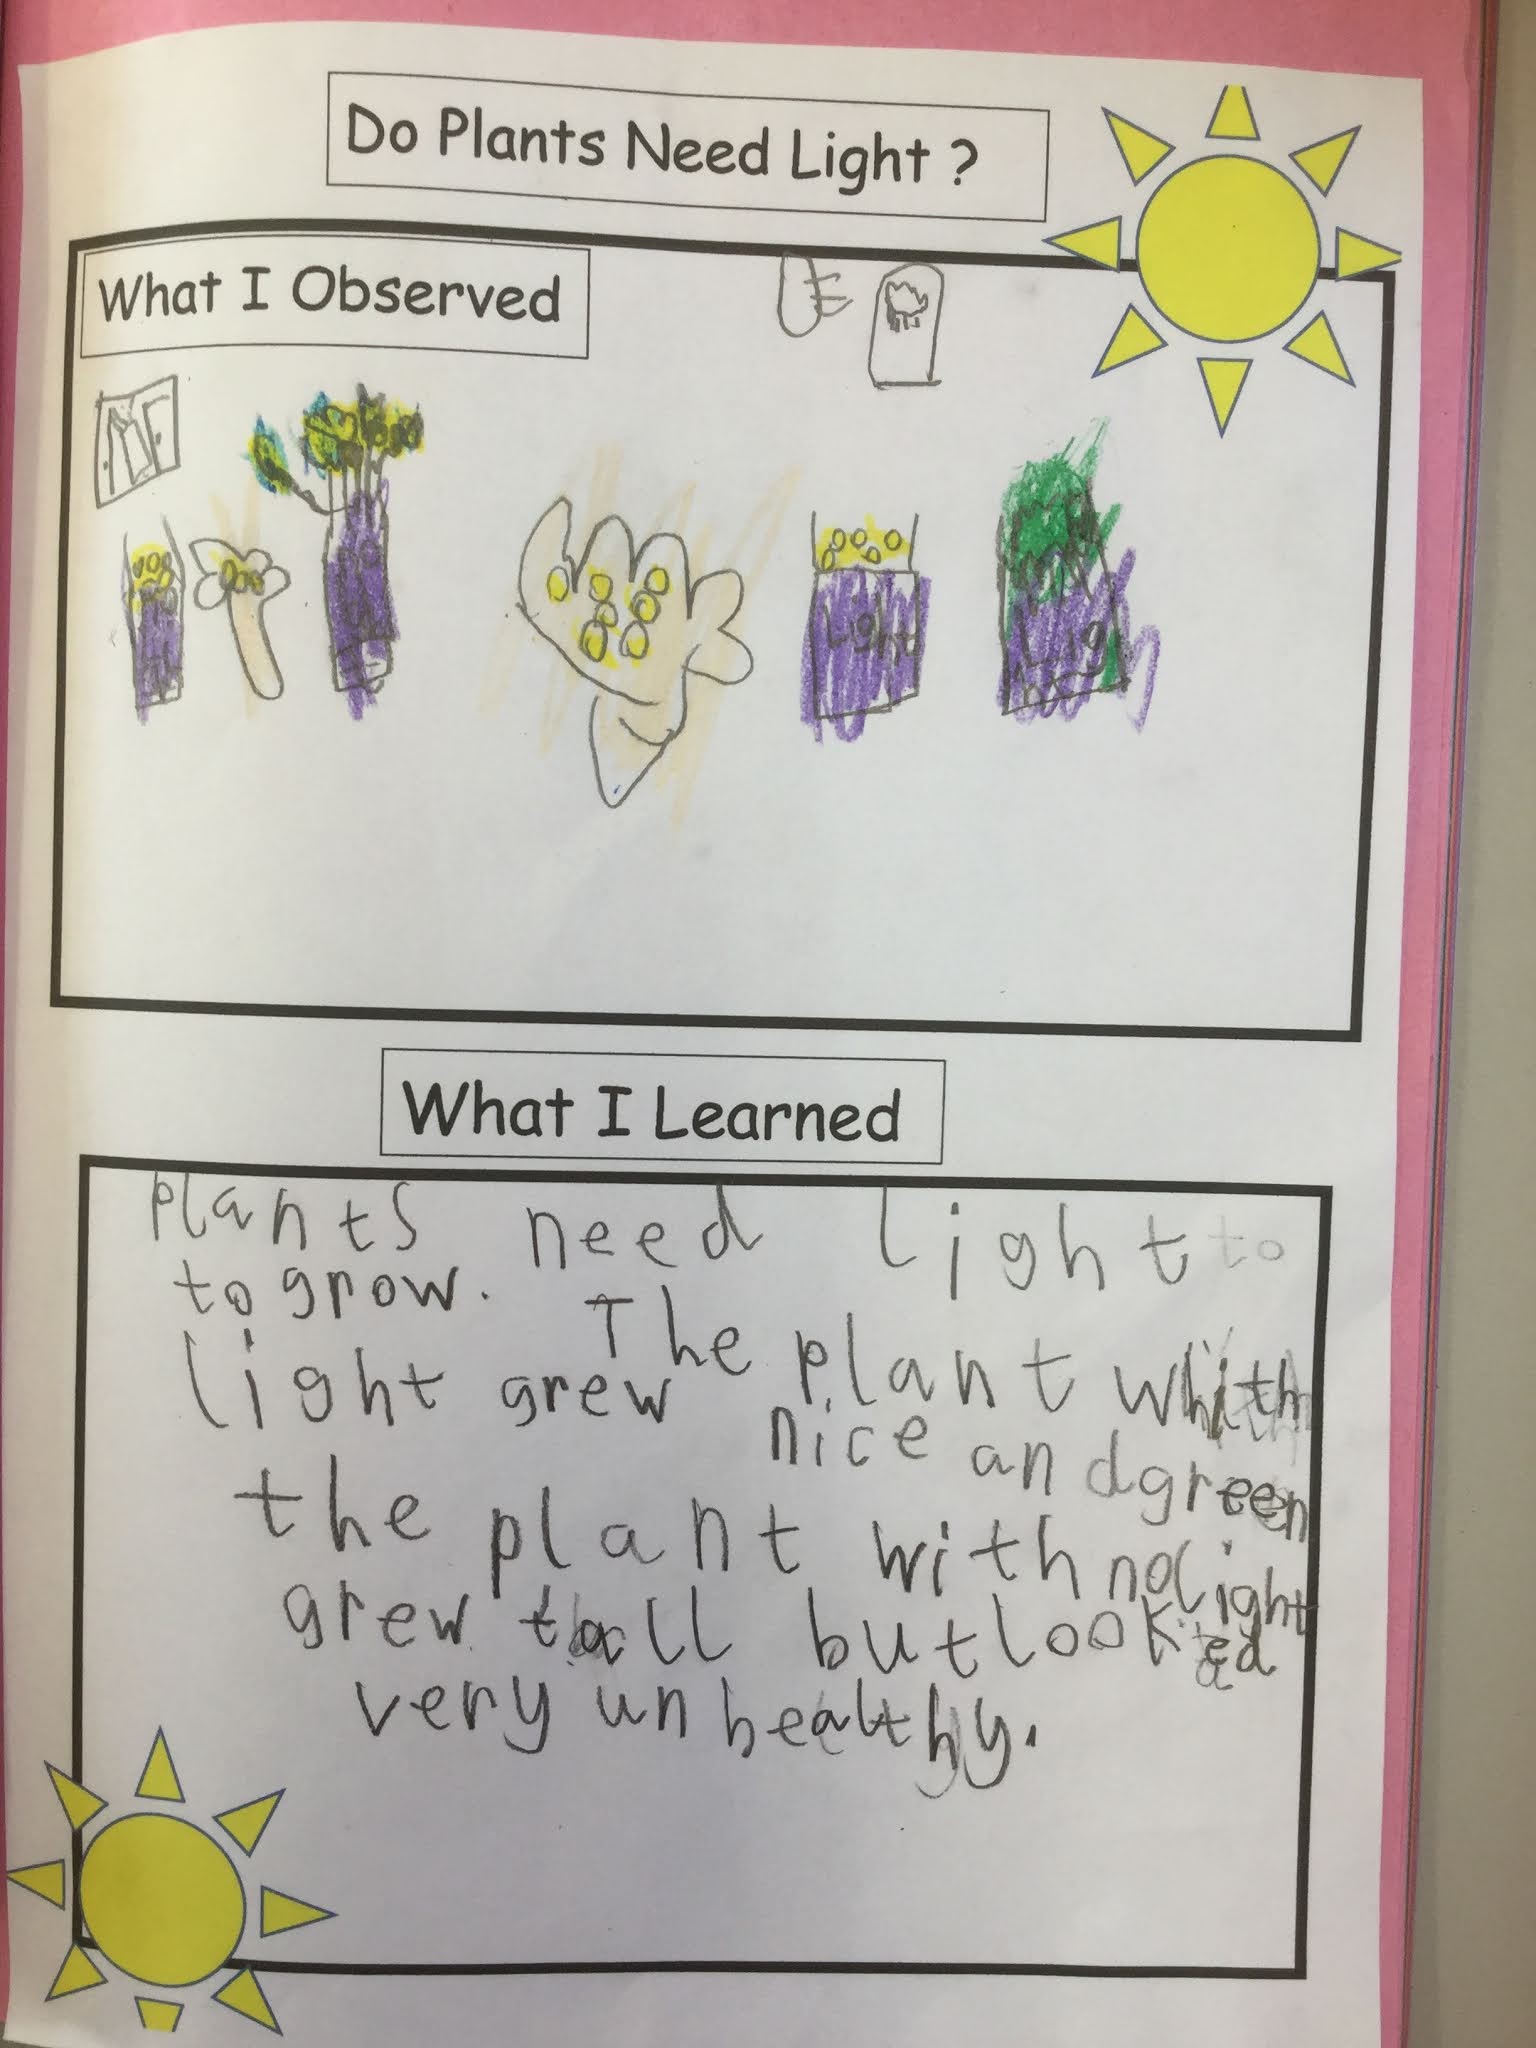 Do Plants Need Light ?
What I Observed
Light
Lig
What I Learned
plants need light to
to grow.
The plant whith
light grew
nice and green
the plant with no light
grew tall but looked
very un healthy.